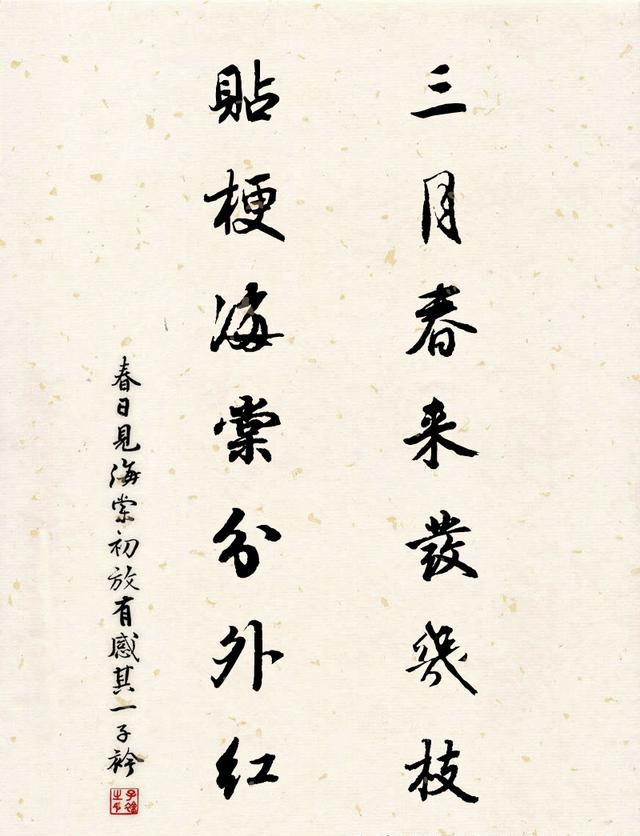 三月春来發幾枝
貼梗海棠分外紅
春日見海棠初放有感其一子衿